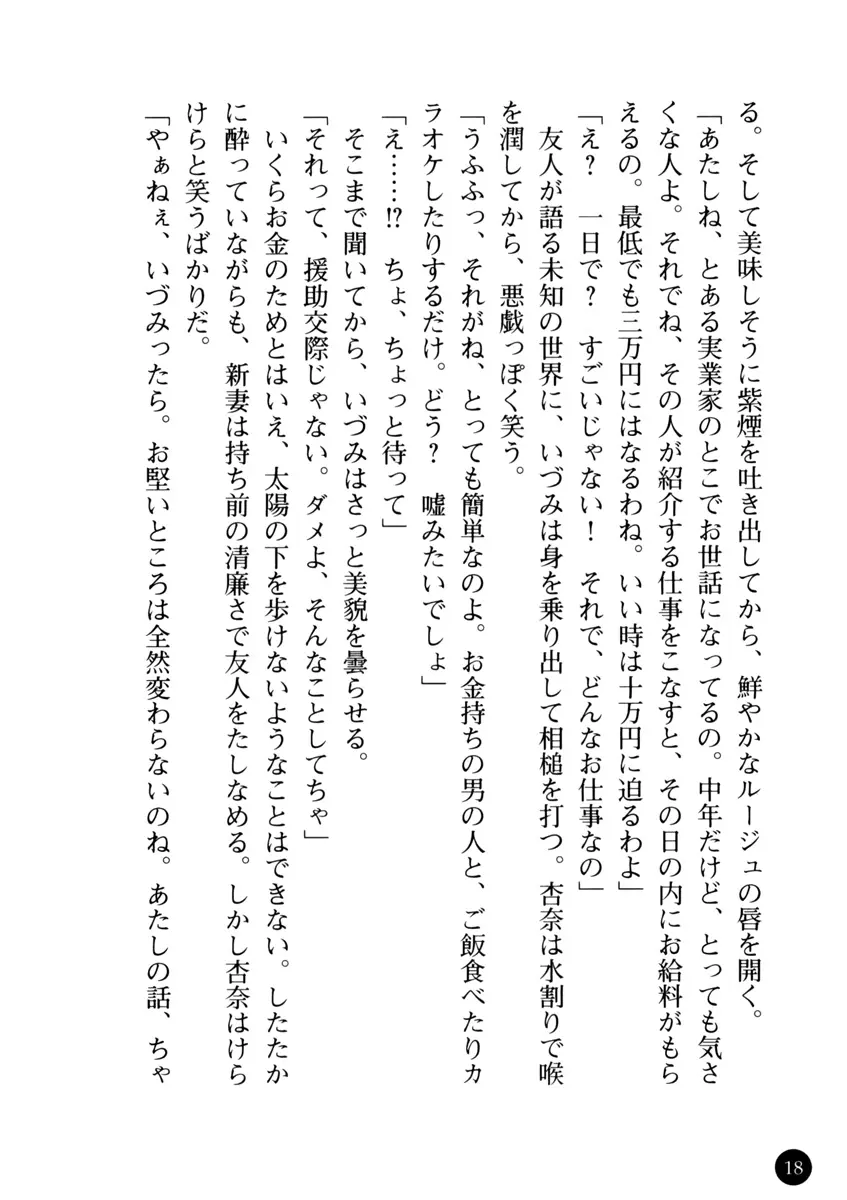 る。そして美味しそうに紫煙を吐き出してから、鮮やかなルージュの唇を開く。
「あたしね、とある実業家のとこでお世話になってるの。中年だけど、とっても気さ
くな人よ。それでね、その人が紹介する仕事をこなすと、その日の内にお給料がもら
えるの。最低でも三万円にはなるわね。いい時は十万円に迫るわよ」
「え？　一日で？　すごいじゃない！　それで、どんなお仕事なの」
　友人が語る未知の世界に、いづみは身を乗り出して相槌を打つ。杏奈は水割りで喉
を潤してから、悪戯っぽく笑う。
「うふふっ、それがね、とっても簡単なのよ。お金持ちの男の人と、ご飯食べたりカ
ラオケしたりするだけ。どう？　嘘みたいでしょ」
「え……!?　ちょ、ちょっと待って」
　そこまで聞いてから、いづみはさっと美貌を曇らせる。
「それって、援助交際じゃない。ダメよ、そんなことしてちゃ」
　いくらお金のためとはいえ、太陽の下を歩けないようなことはできない。したたか
に酔っていながらも、新妻は持ち前の清廉さで友人をたしなめる。しかし杏奈はけら
けらと笑うばかりだ。
「やぁねぇ、いづみったら。お堅いところは全然変わらないのね。あたしの話、ちゃ
18